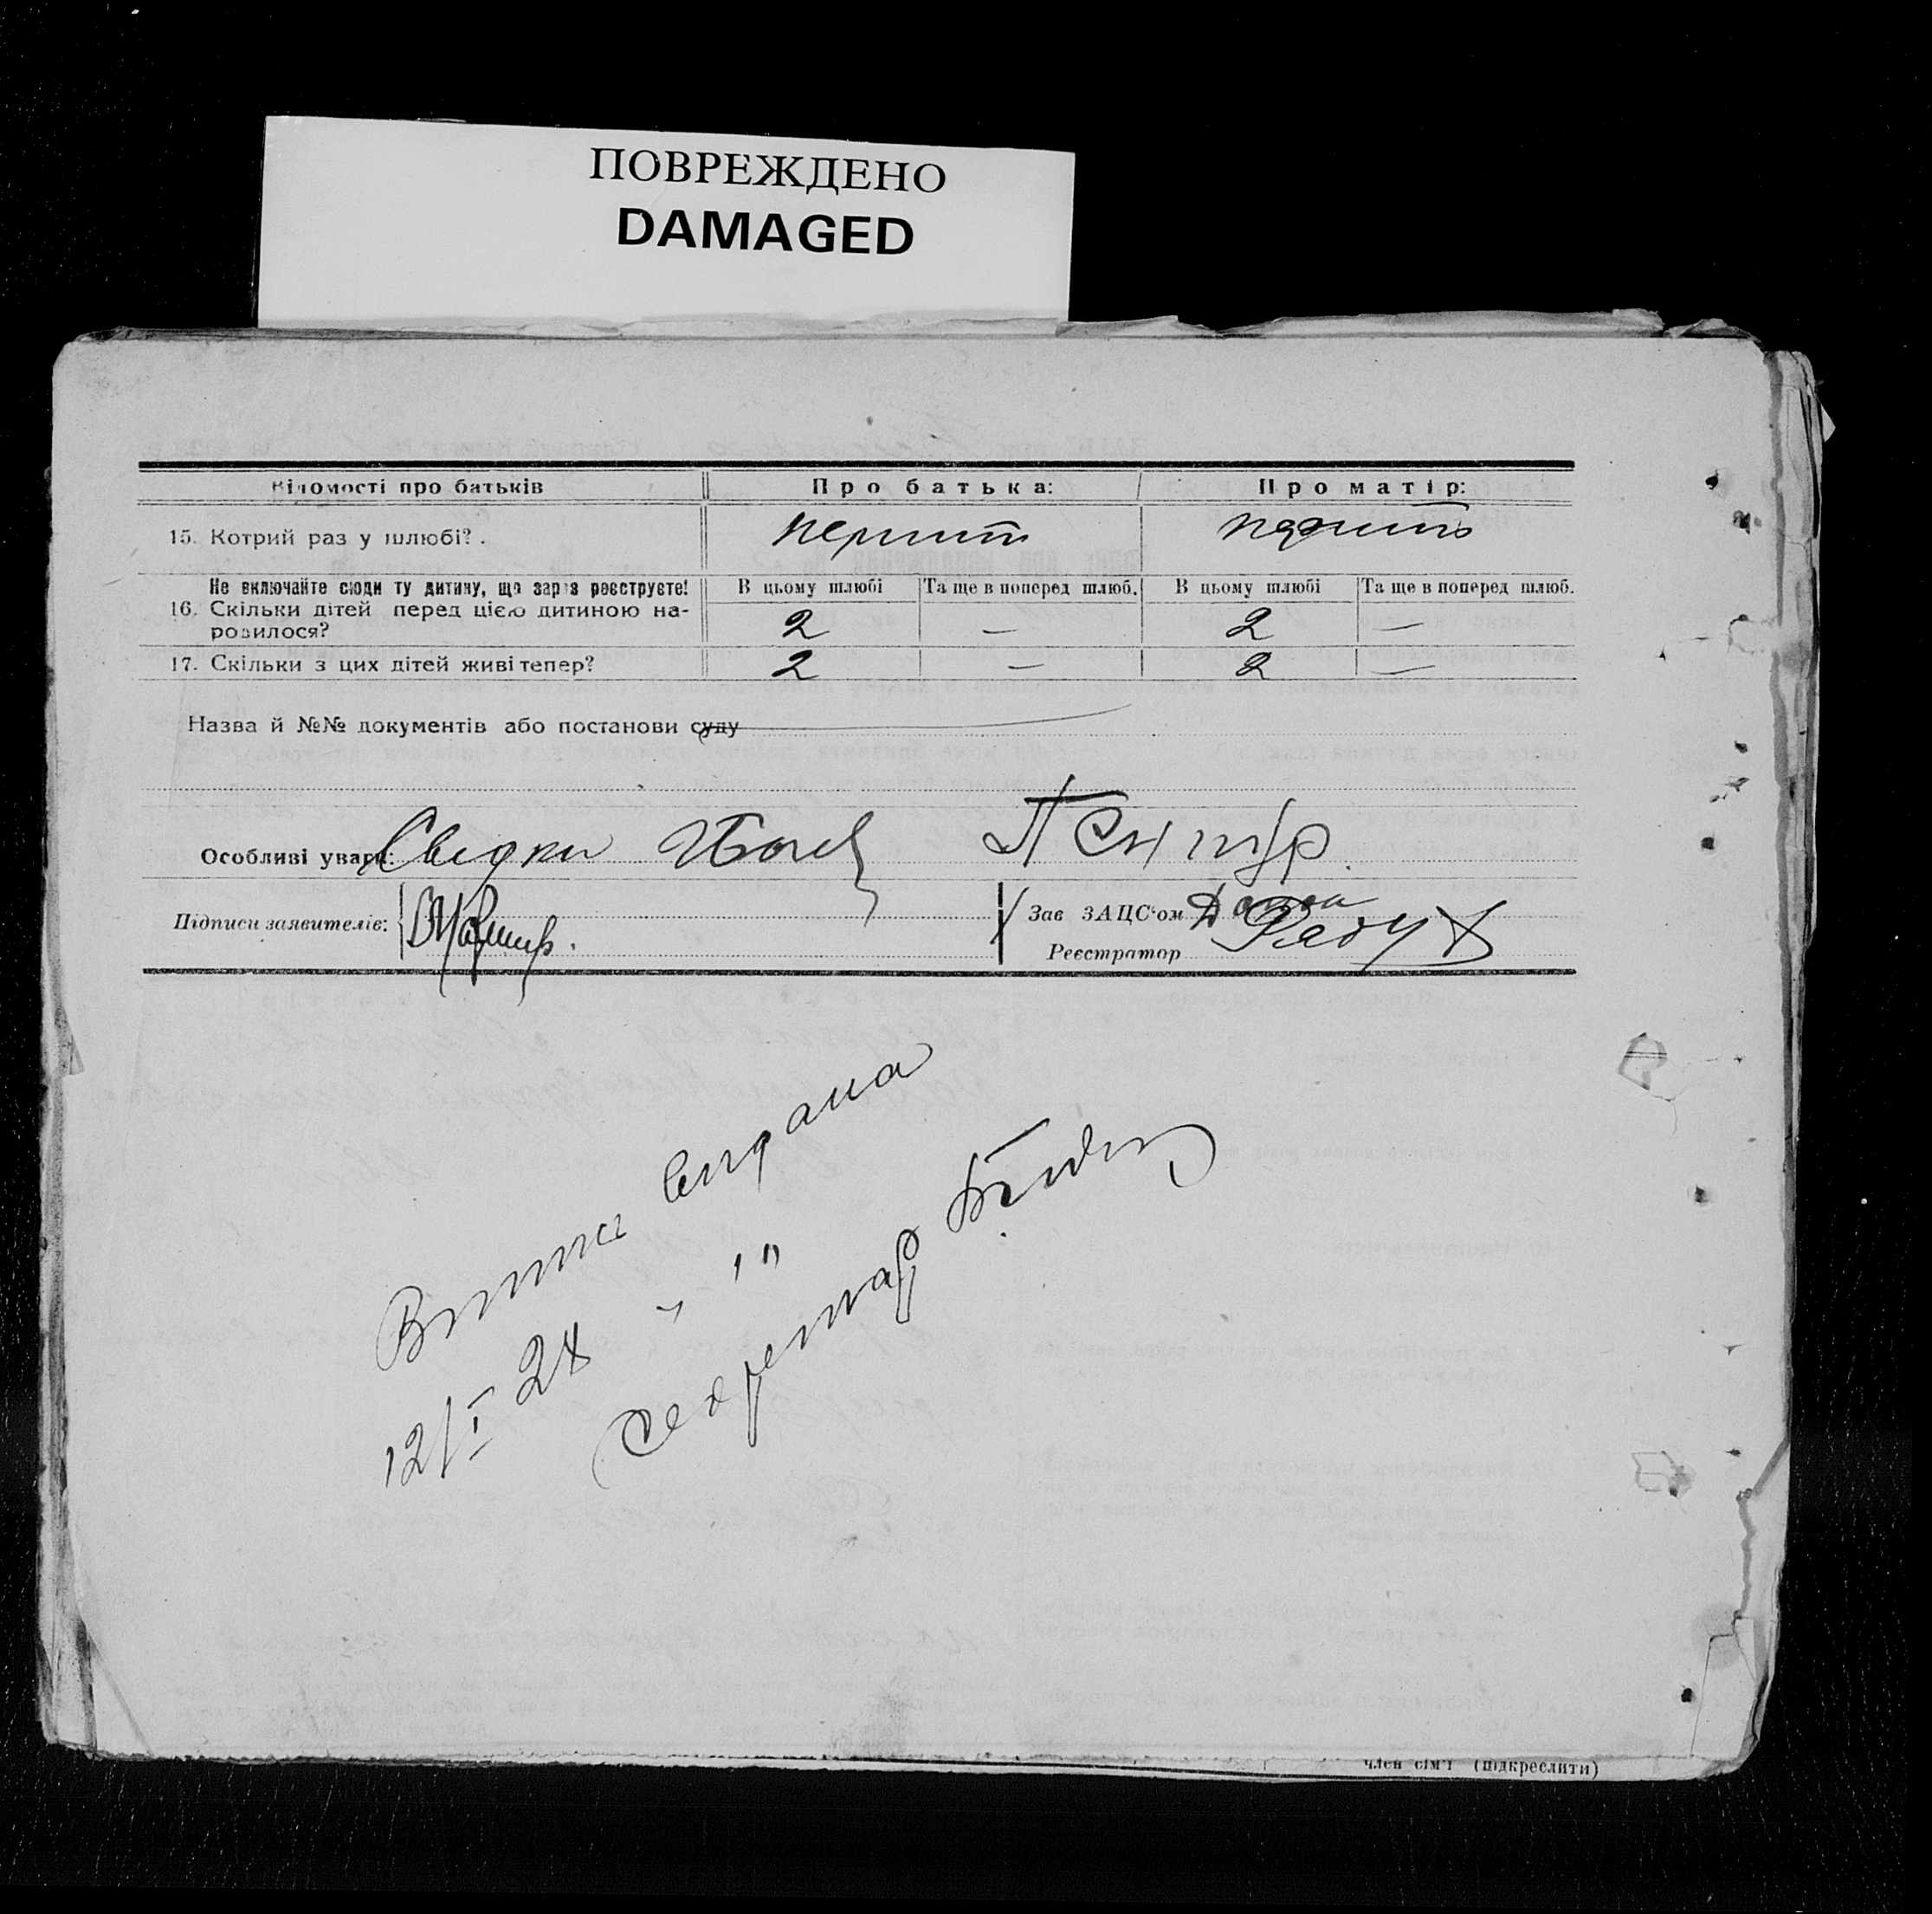 ПОВРЕЖДЕНО
DAMAGED
Відомості про батьків Про батька: Про матір:
15. Котрий раз у шлюбі?.
Не включайте сюди ту дитину, що зараз реєструєте! В цьому шлюбі Та ще в поперед шлюб. В цьому шлюбі Та ще в поперед шлюб.
16. Скільки дітей перед цією дитиною на-
родилося? 2 — 2 —
17. Скільки з цих дітей живі тепер? 2 — 2 —
Назва й №№ документів або постанови суду
Особливі уваги: Свидки
Підписи заявителів: Зав ЗАЦС'ом
Реєстратор
Витка видана
12/I 28
Секретар
член сім'ї (підкреслити)